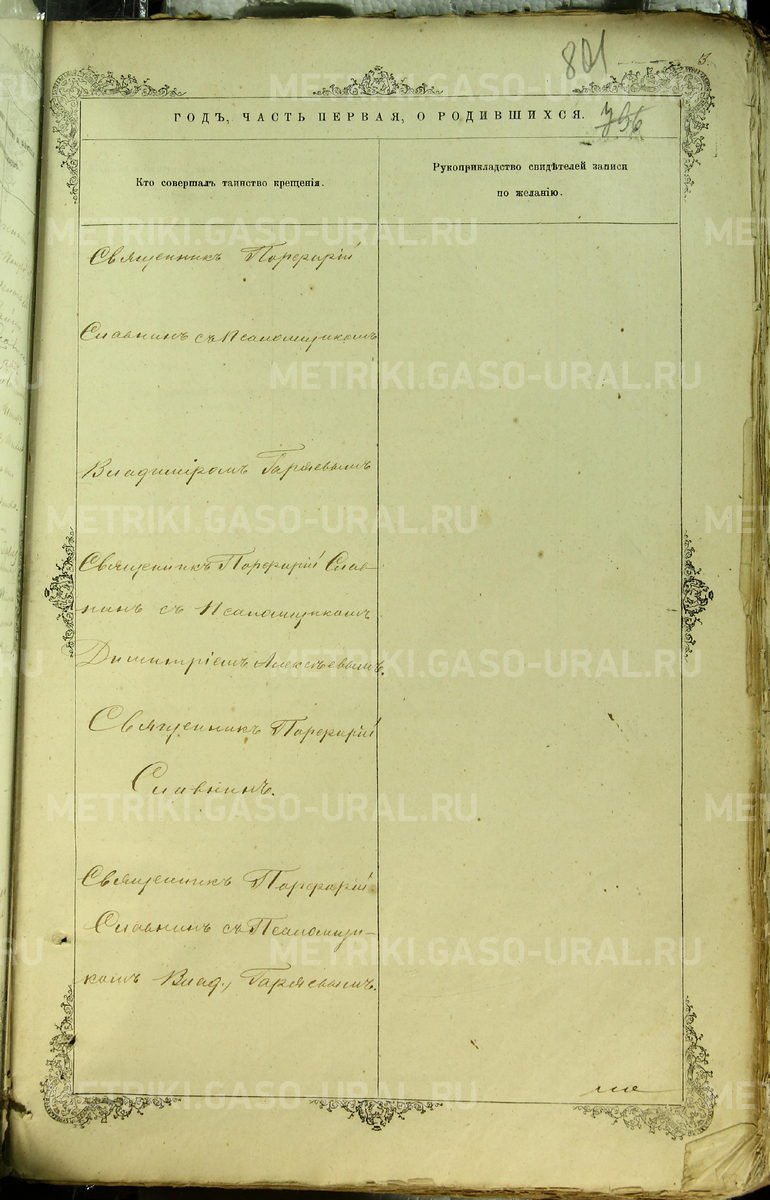 801
3.
ГОДЪ, ЧАСТЬ ПЕРВАЯ, О РОДИВШИХСЯ.
796
Кто совершалъ таинство крещенія.
Рукоприкладство свидѣтелей записи
по желанію.
Священникъ Порфирій
Славнинъ съ Псаломщикомъ
Владиміромъ Гаряевымъ
Священникъ Порфирій Слав-
нинъ съ Псаломщикомъ
Димитріемъ Алексѣевымъ.
Священникъ Порфирій
Славнинъ.
Священникъ Порфирій
Славнинъ съ Псаломщи-
комъ Влад., Гаряевымъ.
METRIKI.GASO-URAL.RU